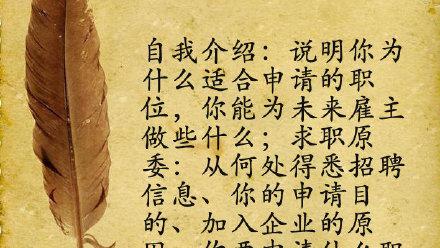 自我介绍：说明你为
什么适合申请的职
位，你能为未来雇主
做些什么；求职原
委：从何处得悉招聘
信息、你的申请目
的、加入企业的原
因、你要申请什么职